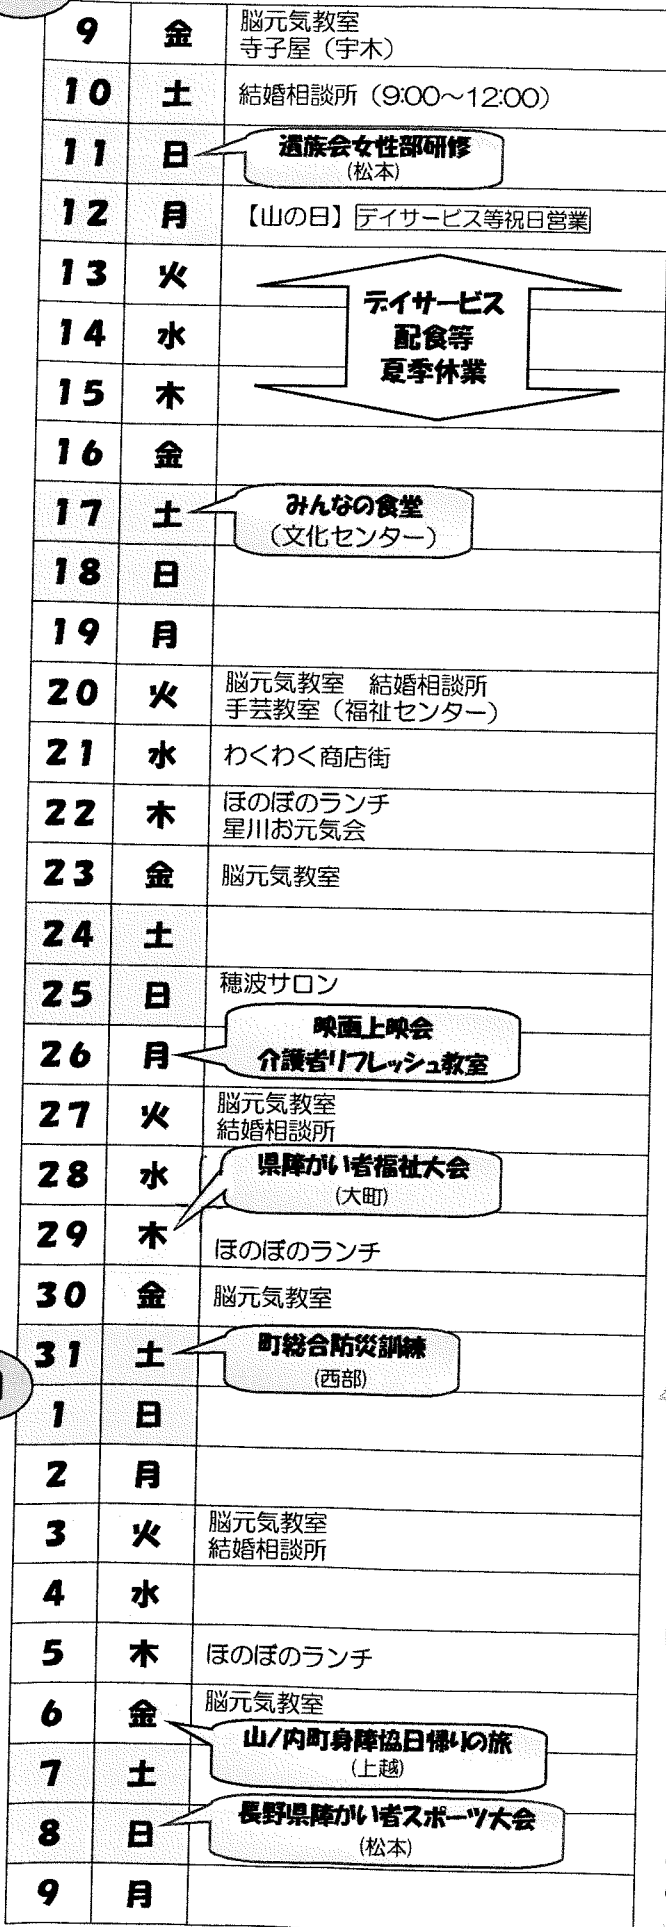 9 金 脳元気教室
寺子屋（宇木）
10 土 結婚相談所（9:00～12:00）
11 日 遺族会女性部研修
(松本)
12 月 【山の日】デイサービス等祝日営業
13 火
デイサービス
14 水 配食等
夏季休業
15 木
16 金
17 土 みんなの食堂
（文化センター）
18 日
19 月
20 火 脳元気教室　結婚相談所
手芸教室（福祉センター）
21 水 わくわく商店街
22 木 ほのぼのランチ
星川お元気会
23 金 脳元気教室
24 土
25 日 穂波サロン
映画上映会
26 月 介護者リフレッシュ教室
27 火 脳元気教室
結婚相談所
28 水 県障がい者福祉大会
(大町)
29 木 ほのぼのランチ
30 金 脳元気教室
31 土 町総合防災訓練
(西部)
1 日
2 月
3 火 脳元気教室
結婚相談所
4 水
5 木 ほのぼのランチ
6 金 脳元気教室
山ノ内町身障協日帰りの旅
(上越)
7 土
8 日 長野県障がい者スポーツ大会
(松本)
9 月